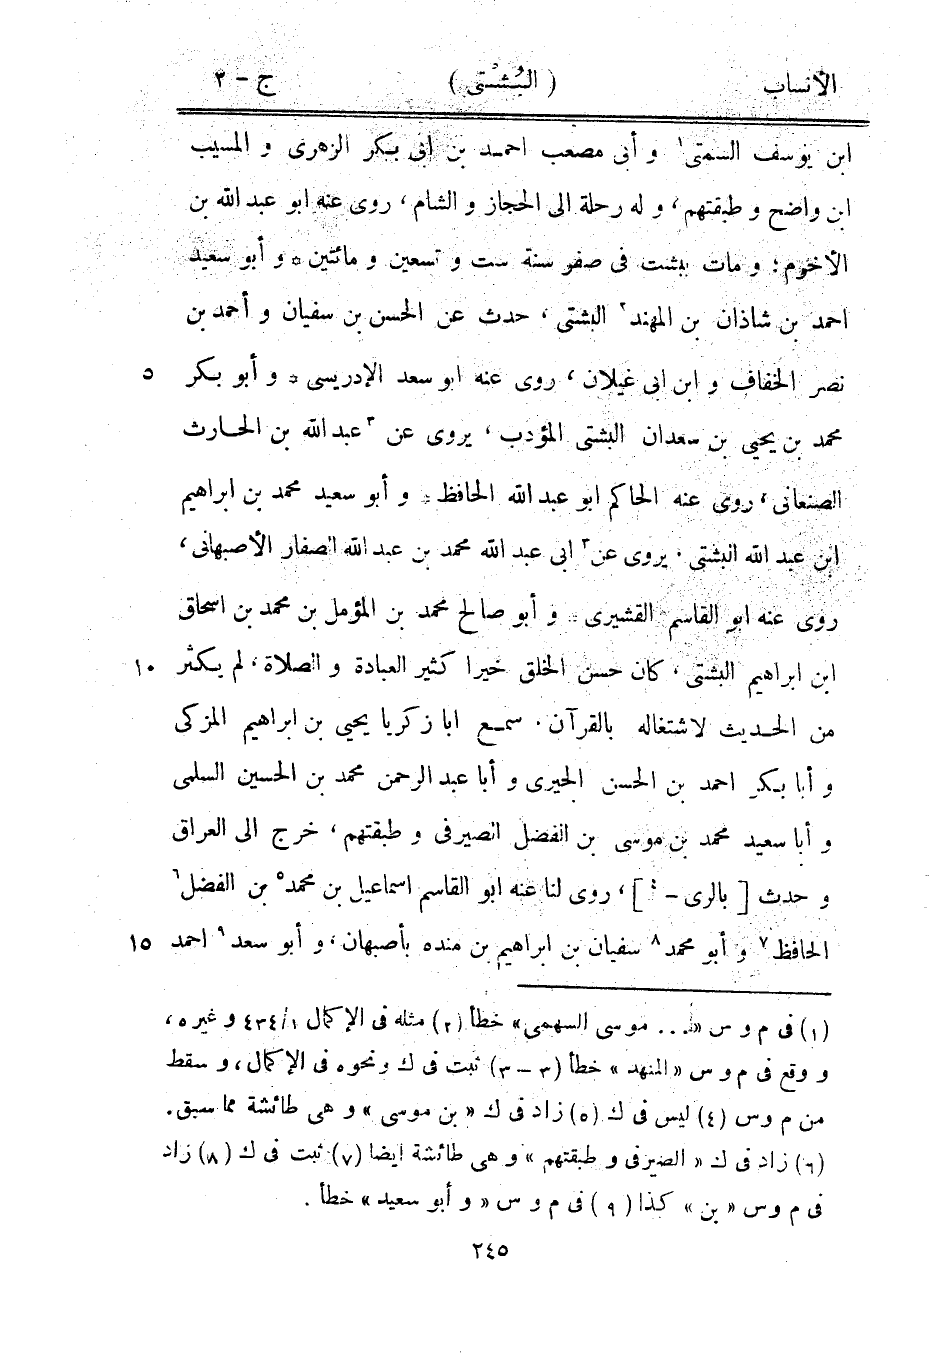 الأنساب (البُشْتى) ج - ٢
ابن يوسف السمتى١ و أبى مصعب احمد بن أبى بكر الزهرى و المسيب
ابن واضح و طبقتهم، و له رحلة الى الحجاز و الشام، روى عنه ابو عبد الله بن
الأخرم؛ و مات ببشت فى صفر سنة ست و تسعين و مائتين * و أبو سعيد
احمد بن شاذان بن المهند٢ البشتى، حدث عن الحسن بن سفيان و أحمد بن
نصر الخفاف و ابن ابى غيلان، روى عنه ابو سعد الإدريسى * و أبو بكر ٥
محمد بن يحيى بن سعدان البشتى المؤدب، يروى عن ٣ عبد الله بن الحارث
الصنعانى، روى عنه الحاكم ابو عبد الله الحافظ * و أبو سعيد محمد بن ابراهيم
ابن عبد الله البشتى. يروى عن٣ ابى عبد الله محمد بن عبد الله الصفار الأصبهانى،
روى عنه ابو القاسم القشيرى * و أبو صالح محمد بن المؤمل بن محمد بن اسحاق
ابن ابراهيم البشتى، كان حسن الخلق خيرا كثير العبادة و الصلاة، لم يكثر ١٠
من الحديث لاشتغاله بالقرآن. سمع ابا زكريا يحيى بن ابراهيم المزكى
و أبا بكر احمد بن الحسن الحيرى و أبا عبد الرحمن محمد بن الحسين السلمى
و أبا سعيد محمد بن موسى بن الفضل الصيرفى و طبقتهم، خرج الى العراق
و حدث [ بالرى - ٤ ]، روى لنا عنه ابو القاسم اسماعيل بن محمد٥ بن الفضل٦
الحافظ٧ و أبو محمد٨ سفيان بن ابراهيم بن منده بأصبهان، و أبو سعد٩ احمد ١٥
(١) فى م و س «... موسى السهمى» خطأ (٢) مثله فى الإكمال ١/٤٣٤ و غيره،
و وقع فى م و س «المنهد» خطأ (٣ - ٣) ثبت فى ك ونحوه فى الإكمال، و سقط
من م وس (٤) ليس فى ك (٥) زاد فى ك « بن موسى » و هى طائشة مما سبق.
(٦) زاد فى ك « الصيرفى و طبقتهم » و هى طائشة ايضا (٧) ثبت فى ك (٨) زاد
فى م وس « بن » كذا (٩) فى م و س « و أبو سعيد » خطأ .
٢٤٥